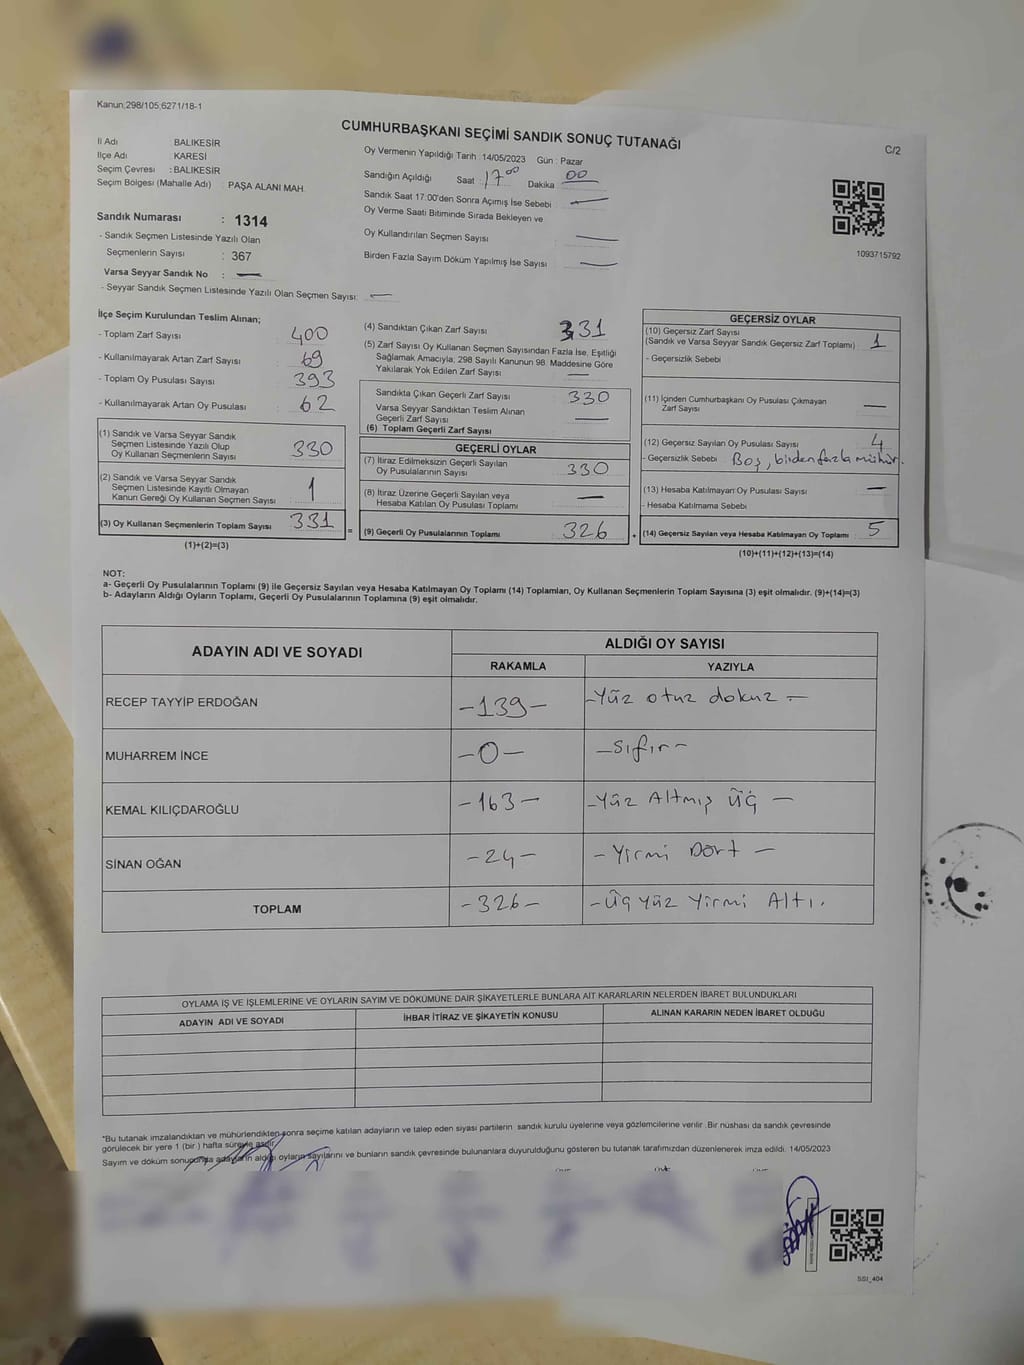 Kanun;298/105;6271/18-1
CUMHURBAŞKANI SEÇİMİ SANDIK SONUÇ TUTANAĞI
C/2
İl Adı BALIKESİR
İlçe Adı KARESİ
Seçim Çevresi : BALIKESİR
Seçim Bölgesi (Mahalle Adı) : PAŞA ALANI MAH.
Sandık Numarası : 1314
- Sandık Seçmen Listesinde Yazılı Olan
Seçmenlerin Sayısı : 367
Varsa Seyyar Sandık No : —
- Seyyar Sandık Seçmen Listesinde Yazılı Olan Seçmen Sayısı: —
Oy Vermenin Yapıldığı Tarih : 14/05/2023 Gün : Pazar
Sandığın Açıldığı Saat : 17 00 Dakika : 00
Sandık Saat 17:00'den Sonra Açımış İse Sebebi : —
Oy Verme Saati Bitiminde Sırada Bekleyen ve
Oy Kullandırılan Seçmen Sayısı : —
Birden Fazla Sayım Döküm Yapılmış İse Sayısı : —
1093715792
İlçe Seçim Kurulundan Teslim Alınan;
- Toplam Zarf Sayısı : 400
- Kullanılmayarak Artan Zarf Sayısı : 69
- Toplam Oy Pusulası Sayısı : 393
- Kullanılmayarak Artan Oy Pusulası : 62
(1) Sandık ve Varsa Seyyar Sandık
Seçmen Listesinde Yazılı Olup
Oy Kullanan Seçmenlerin Sayısı : 330
(2) Sandık ve Varsa Seyyar Sandık
Seçmen Listesinde Kayıtlı Olmayan
Kanun Gereği Oy Kullanan Seçmen Sayısı : 1
(3) Oy Kullanan Seçmenlerin Toplam Sayısı : 331 =
(1)+(2)=(3)
(4) Sandıktan Çıkan Zarf Sayısı : 331
(5) Zarf Sayısı Oy Kullanan Seçmen Sayısından Fazla İse, Eşitliği
Sağlamak Amacıyla, 298 Sayılı Kanunun 98. Maddesine Göre
Yakılarak Yok Edilen Zarf Sayısı : —
Sandıkta Çıkan Geçerli Zarf Sayısı : 330
Varsa Seyyar Sandıktan Teslim Alınan
Geçerli Zarf Sayısı : —
(6) Toplam Geçerli Zarf Sayısı
GEÇERLİ OYLAR
(7) İtiraz Edilmeksizin Geçerli Sayılan
Oy Pusulalarının Sayısı : 330
(8) İtiraz Üzerine Geçerli Sayılan veya
Hesaba Katılan Oy Pusulası Toplamı : —
(9) Geçerli Oy Pusulalarının Toplamı : 326
GEÇERSİZ OYLAR
(10) Geçersiz Zarf Sayısı
(Sandık ve Varsa Seyyar Sandık Geçersiz Zarf Toplamı) : 1
- Geçersizlik Sebebi
(11) İçinden Cumhurbaşkanı Oy Pusulası Çıkmayan
Zarf Sayısı : —
(12) Geçersiz Sayılan Oy Pusulası Sayısı : 4
- Geçersizlik Sebebi : Boş, birden fazla mühür.
(13) Hesaba Katılmayan Oy Pusulası Sayısı : —
- Hesaba Katılmama Sebebi
(14) Geçersiz Sayılan veya Hesaba Katılmayan Oy Toplamı : 5
(10)+(11)+(12)+(13)=(14)
NOT:
a- Geçerli Oy Pusulalarının Toplamı (9) ile Geçersiz Sayılan veya Hesaba Katılmayan Oy Toplamı (14) Toplamları, Oy Kullanan Seçmenlerin Toplam Sayısına (3) eşit olmalıdır. (9)+(14)=(3)
b- Adayların Aldığı Oyların Toplamı, Geçerli Oy Pusulalarının Toplamına (9) eşit olmalıdır.
ADAYIN ADI VE SOYADI
ALDIĞI OY SAYISI
RAKAMLA YAZIYLA
RECEP TAYYİP ERDOĞAN -139- -Yüz otuz dokuz -
MUHARREM İNCE -0- -Sıfır-
KEMAL KILIÇDAROĞLU -163- -Yüz Altmış Üç -
SİNAN OĞAN -24- -Yirmi Dört -
TOPLAM -326- -Üç Yüz Yirmi Altı.
OYLAMA İŞ VE İŞLEMLERİNE VE OYLARIN SAYIM VE DÖKÜMÜNE DAİR ŞİKAYETLERLE BUNLARA AİT KARARLARIN NELERDEN İBARET BULUNDUKLARI
ADAYIN ADI VE SOYADI İHBAR İTİRAZ VE ŞİKAYETİN KONUSU ALINAN KARARIN NEDEN İBARET OLDUĞU
*Bu tutanak imzalandıktan ve mühürlendikten sonra seçime katılan adayların ve talep eden siyasi partilerin sandık kurulu üyelerine veya gözlemcilerine verilir. Bir nüshası da sandık çevresinde
görülecek bir yere 1 (bir ) hafta süreyle asılır.
Sayım ve döküm sonucunda adayların aldığı oyların sayılarını ve bunların sandık çevresinde bulunanlara duyurulduğunu gösteren bu tutanak tarafımızdan düzenlenerek imza edildi. 14/05/2023
SSI_404